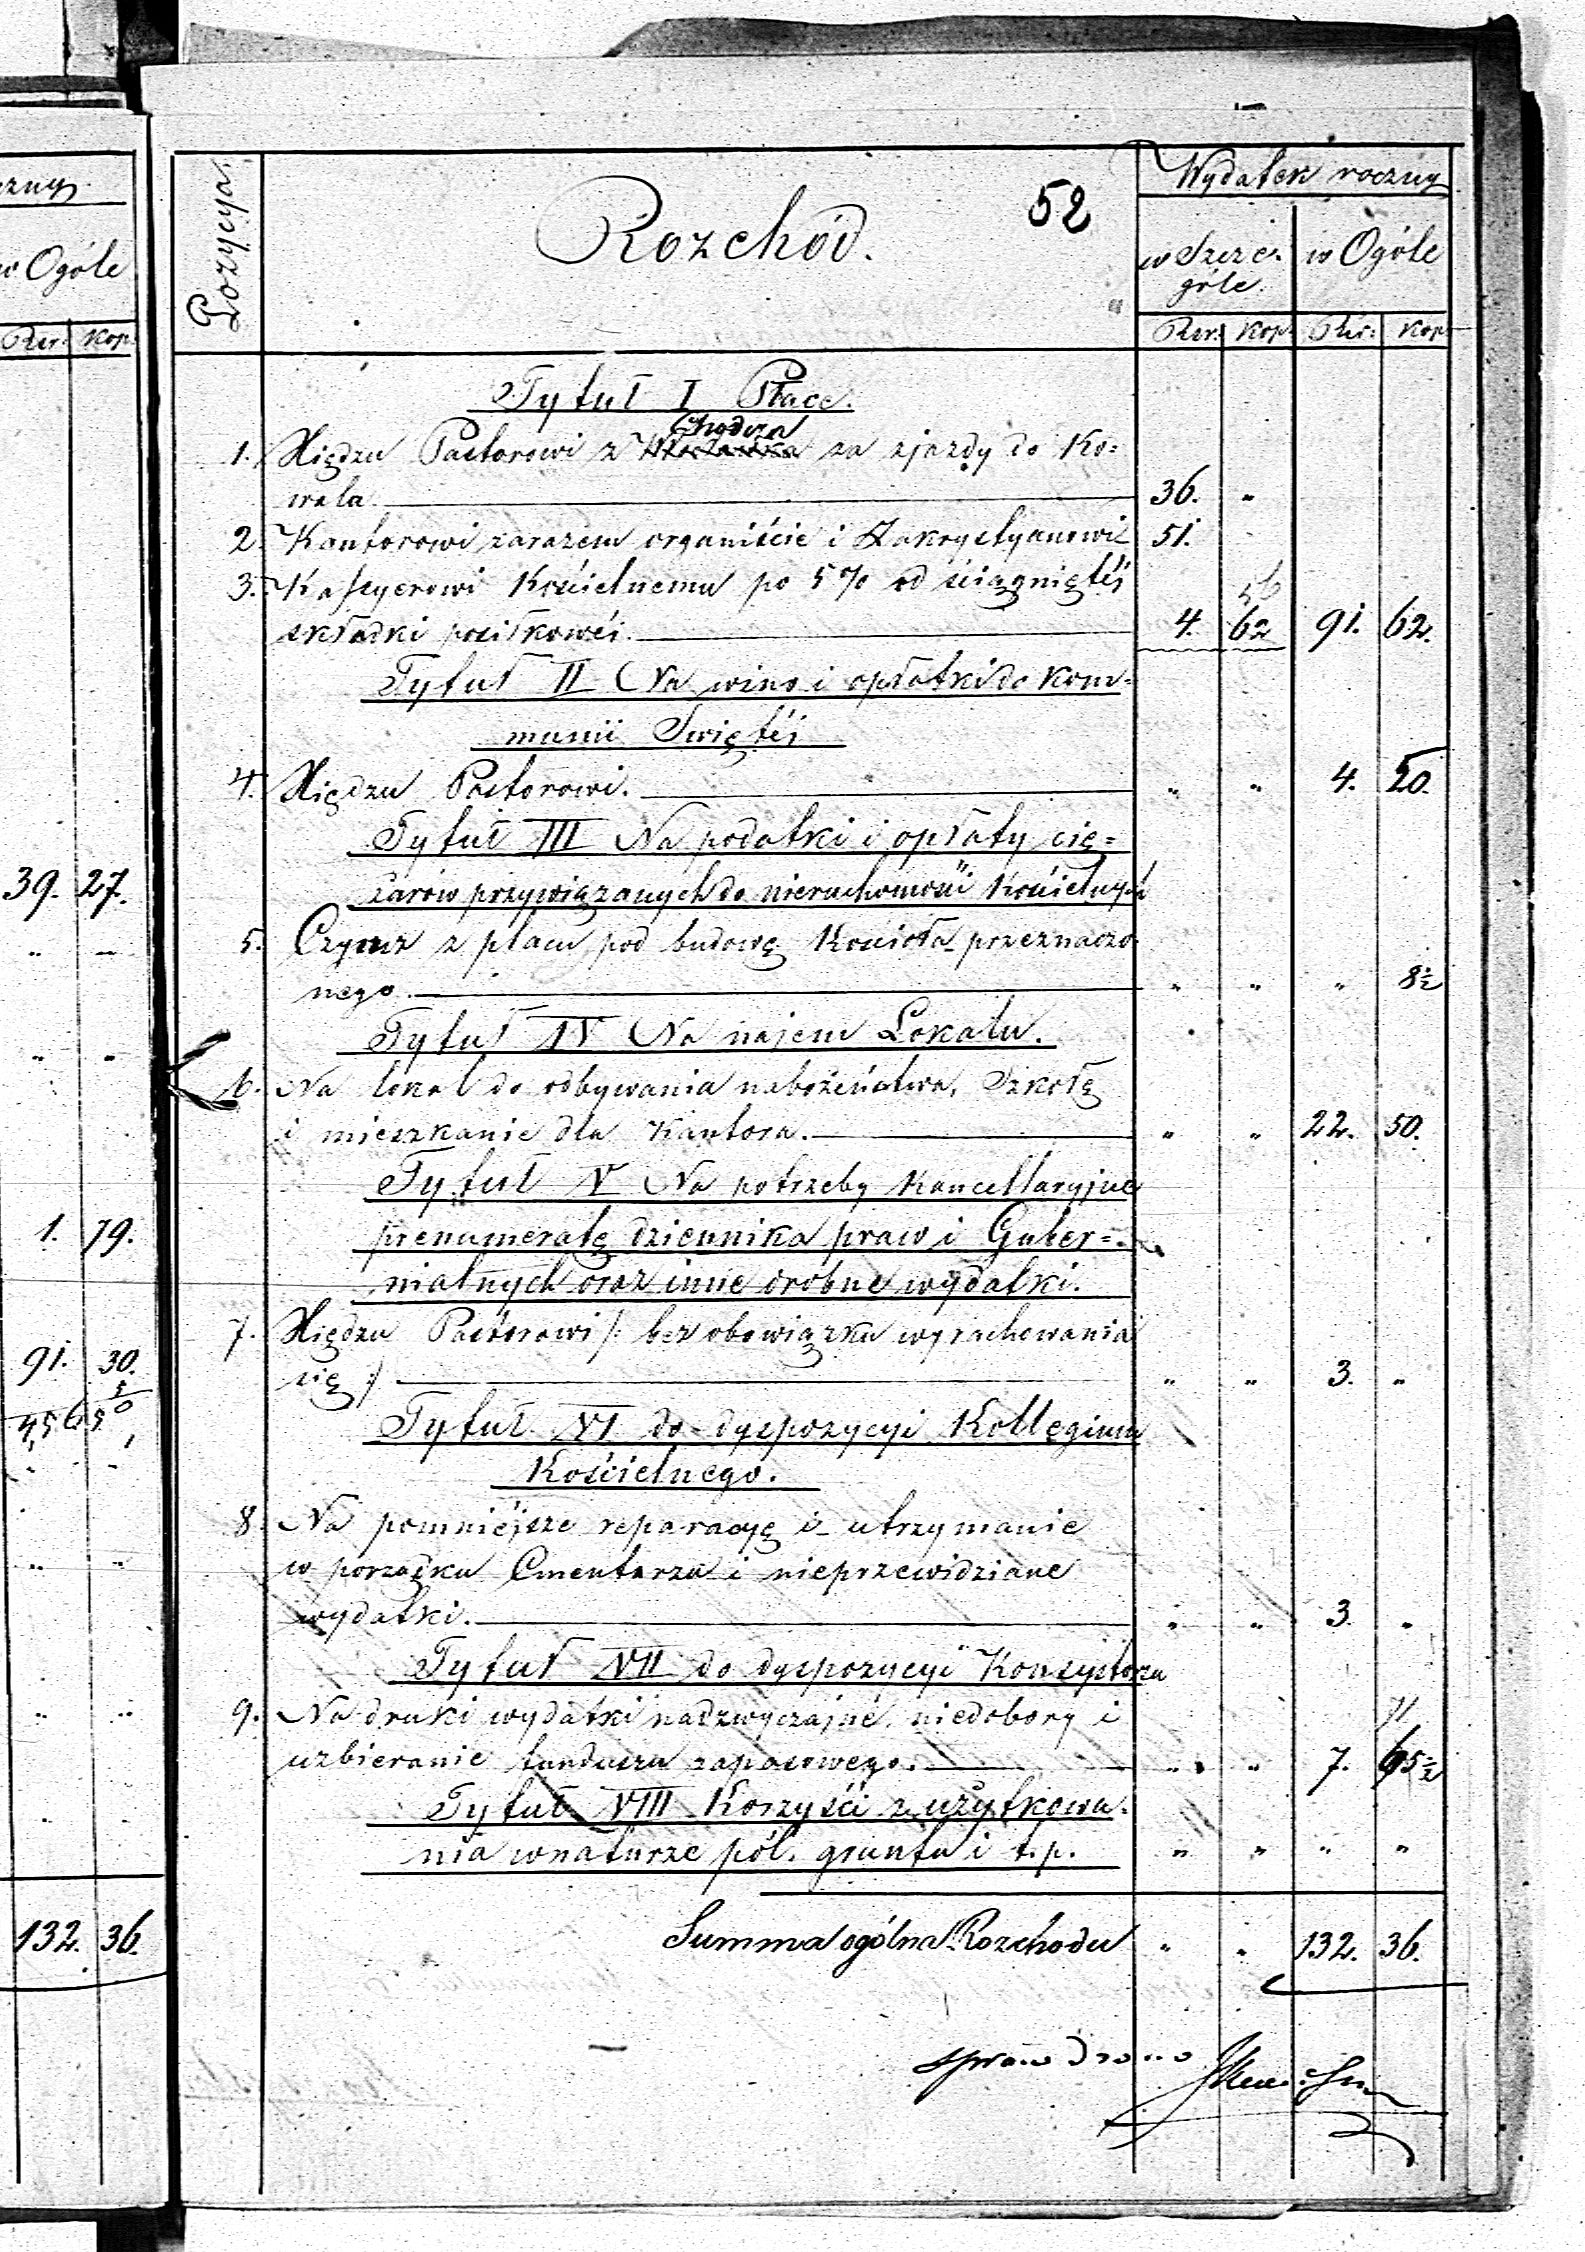 czny
w Ogóle
Rsr: kop.
39. 27.
" "
" "
1. 79.
91. 30.
" "
" "
132. 36.
Pozycya.
Rozchód.
52
Wydatek roczny
w Szcze=
góle.
w Ogóle
Rsr: kop: Rsr: kop.
Tytuł I Płace.
Chodcza
1. Xiędzu Pastorowi z Włocławka za zjazdy do Ko=
wala. 36. "
2. Kantorowi zarazem organiście i Zakrystyanowi 51.
3. Kassyerowi Kościelnemu po 5% od ściągniętéj
56
składki posiłkowéj. 4. 62 91. 62.
Tytuł II Na wino i opłatki do kom=
munii Swiętéj
4. Xiędzu Pastorowi. " " 4. 50.
Tytuł III Na podatki i opłaty cię=
żarów przywiązanych do nieruchomości Kościelnych
5. Czynsz z placu pod budowę Kościoła przeznaczo=
nego. " " " 8½
Tytuł IV Na najem Lokalu.
6. Na lokal do odbywania nabożeństwa, Szkołę
i mieszkanie dla Kantora. " " 22. 50.
Tytuł V Na potrzeby Kancellaryjne
prenumeratę dziennika praw i Guber=
nialnych oraz inne drobne wydatki.
7. Xiędzu Pastorowi /: bez obowiązku wyrachowania
się :/ " " 3. "
Tytuł VI do dyspozycyi Kollegium
Kościelnego.
8. Na pomniéjsze reparacyę i utrzymanie
w porządku Cmentarza i nieprzewidziane
wydatki. " " 3. "
Tytuł VII do dyspozycyi Konsystorza
9. Na druki wydatki nadzwyczajne, niedobory i
71
uzbieranie funduszu zapasowego. " " 7. 65½
Tytuł VIII Korzyści z użytkowa=
nia w naturze pól. gruntu i t.p. " " " "
Summa ogólna Rozchodu " " 132. 36.
sprawdzono